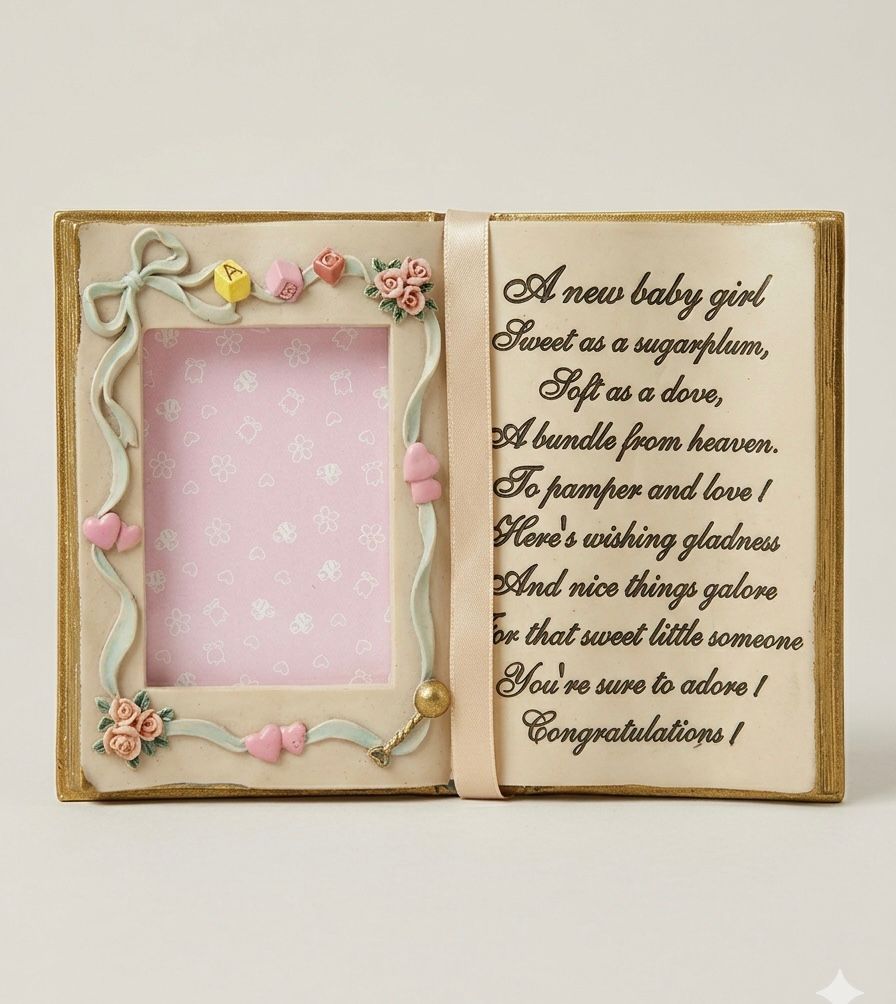 A B C
A new baby girl
Sweet as a sugarplum,
Soft as a dove,
A bundle from heaven.
To pamper and love !
Here's wishing gladness
And nice things galore
For that sweet little someone
You're sure to adore !
Congratulations !